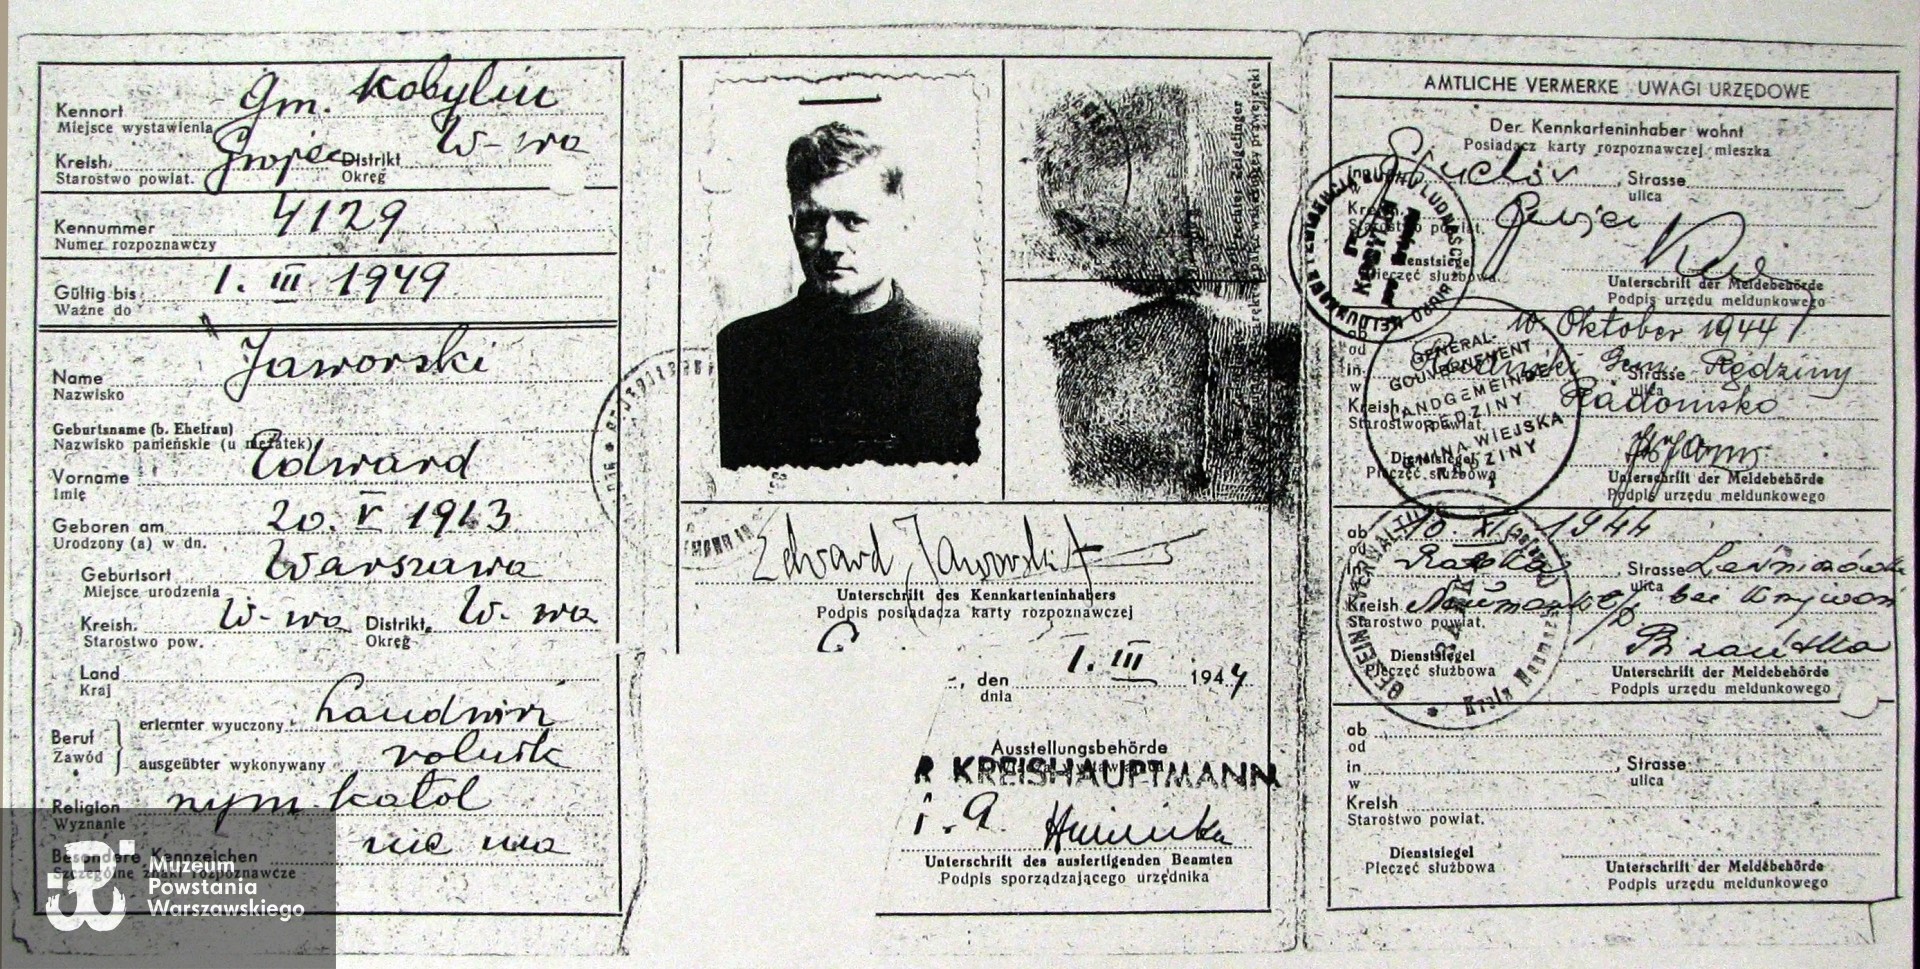 Kennort
Miejsce wystawienia
gm. Kobylin
Kreish.
Starostwo powiat.
Grójec
Distrikt
Okręg
W-wa
Kennummer
Numer rozpoznawczy
4129
Gültig bis
Ważne do
1. III 1949
Name
Nazwisko
Jaworski
Geburtsname (b. Ehefrau)
Nazwisko panieńskie (u mężatek)
Vorname
Imię
Edward
Geboren am
Urodzony (a) w dn.
20. V 1913
Geburtsort
Miejsce urodzenia
Warszawa
Kreish.
Starostwo pow.
W-wa
Distrikt.
Okręg
W-wa
Land
Kraj
Beruf
Zawód
erlernter wyuczony
Landwirt
ausgeübter wykonywany
rolnik
Religion
Wyznanie
rzym. katol
Besondere Kennzeichen
Szczególne znaki rozpoznawcze
nie ma
Muzeum
Powstania
Warszawskiego
rechter Zeigefinger
Edward Jaworski
Unterschrift des Kennkarteninhabers
Podpis posiadacza karty rozpoznawczej
, den
dnia
1. III 1944
Ausstellungsbehörde
R KREISHAUPTMANN
i. A.
Unterschrift des ausfertigenden Beamten
Podpis sporządzającego urzędnika
AMTLICHE VERMERKE UWAGI URZĘDOWE
Der Kennkarteninhaber wohnt
Posiadacz karty rozpoznawczej mieszka
Strasse
ulica
Kreish.
Starostwo powiat.
Grójec
Dienstsiegel
Pieczęć służbowa
Unterschrift der Meldebehörde
Podpis urzędu meldunkowego
ab
od
10. Oktober 1944
in
w
Gem. Rędziny
Strasse
ulica
Kreish
Starostwo powiat.
Radomsko
GENERAL-
GOUVERNEMENT
LANDGEMEINDE
RĘDZINY
GMINA WIEJSKA
RĘDZINY
Dienstsiegel
Pieczęć służbowa
Unterschrift der Meldebehörde
Podpis urzędu meldunkowego
ab
od
10. XI. 1944
in
Strasse
ulica
Kreish
Starostwo powiat.
Dienstsiegel
Pieczęć służbowa
Unterschrift der Meldebehörde
Podpis urzędu meldunkowego
ab
od
in
w
Strasse
ulica
Kreish
Starostwo powiat.
Dienstsiegel
Pieczęć służbowa
Unterschrift der Meldebehörde
Podpis urzędu meldunkowego